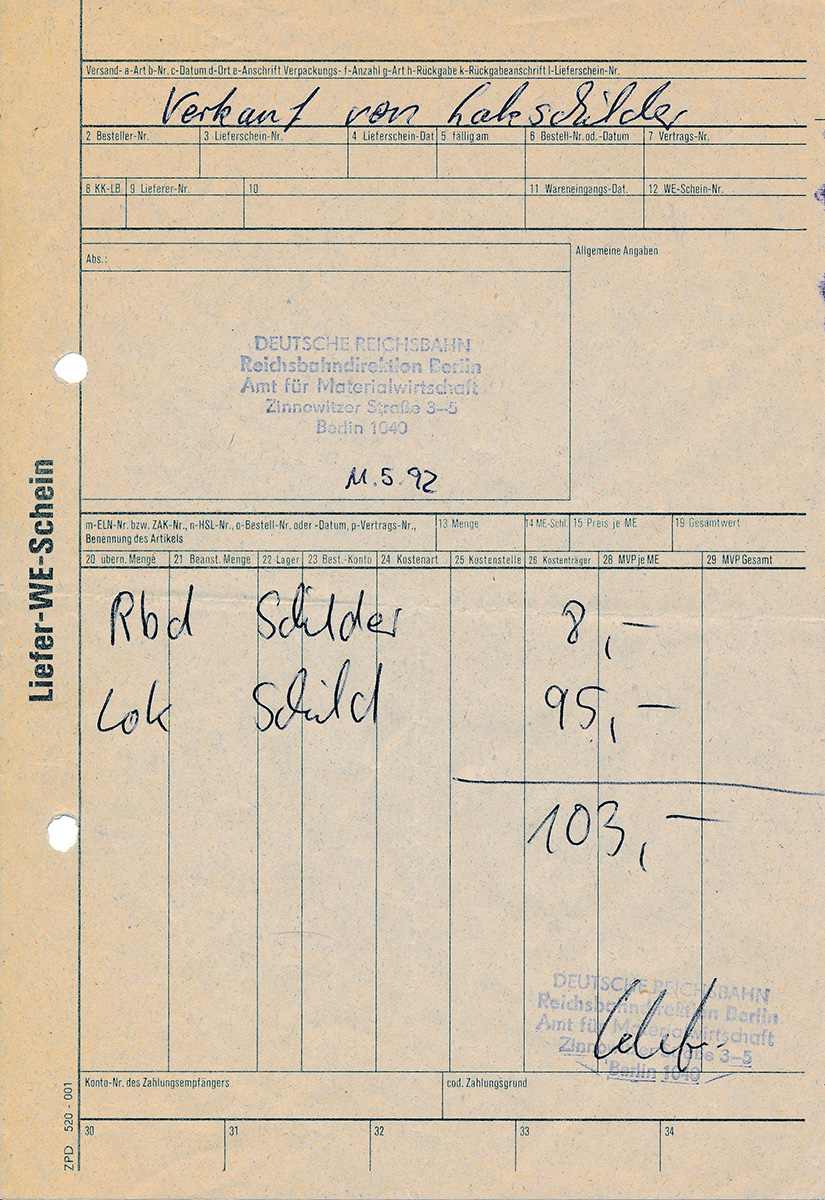 Versand- a-Art b-Nr. c-Datum d-Ort e-Anschrift Verpackungs- f-Anzahl g-Art h-Rückgabe k-Rückgabeanschrift l-Lieferschein-Nr.
Verkauf von Lokschilder
2 Besteller-Nr. 3 Lieferschein-Nr. 4 Lieferschein-Dat 5 fällig am 6 Bestell-Nr.od.-Datum 7 Vertrags-Nr.
8 KK-LB. 9 Lieferer-Nr. 10 11 Wareneingangs-Dat. 12 WE-Schein-Nr.
Abs.: Allgemeine Angaben
DEUTSCHE REICHSBAHN
Reichsbahndirektion Berlin
Amt für Materialwirtschaft
Zinnowitzer Straße 3–5
Berlin 1040
11.5.92
Liefer-WE-Schein
m-ELN-Nr. bzw. ZAK-Nr., n-HSL-Nr., o-Bestell-Nr. oder -Datum, p-Vertrags-Nr., 13 Menge 14 ME-Schl. 15 Preis je ME 19 Gesamtwert
Benennung des Artikels
20 übern. Menge 21 Beanst. Menge 22 Lager 23 Best.-Konto 24 Kostenart 25 Kostenstelle 26 Kostenträger 28 MVP je ME 29 MVP Gesamt
Rbd Schilder 8,–
Lok Schild 95,–
103,–
DEUTSCHE REICHSBAHN
Reichsbahndirektion Berlin
Amt für Materialwirtschaft
Zinnowitzer Straße 3–5
Berlin 1040
Konto-Nr. des Zahlungsempfängers cod. Zahlungsgrund
30 31 32 33 34
ZPD 520-001